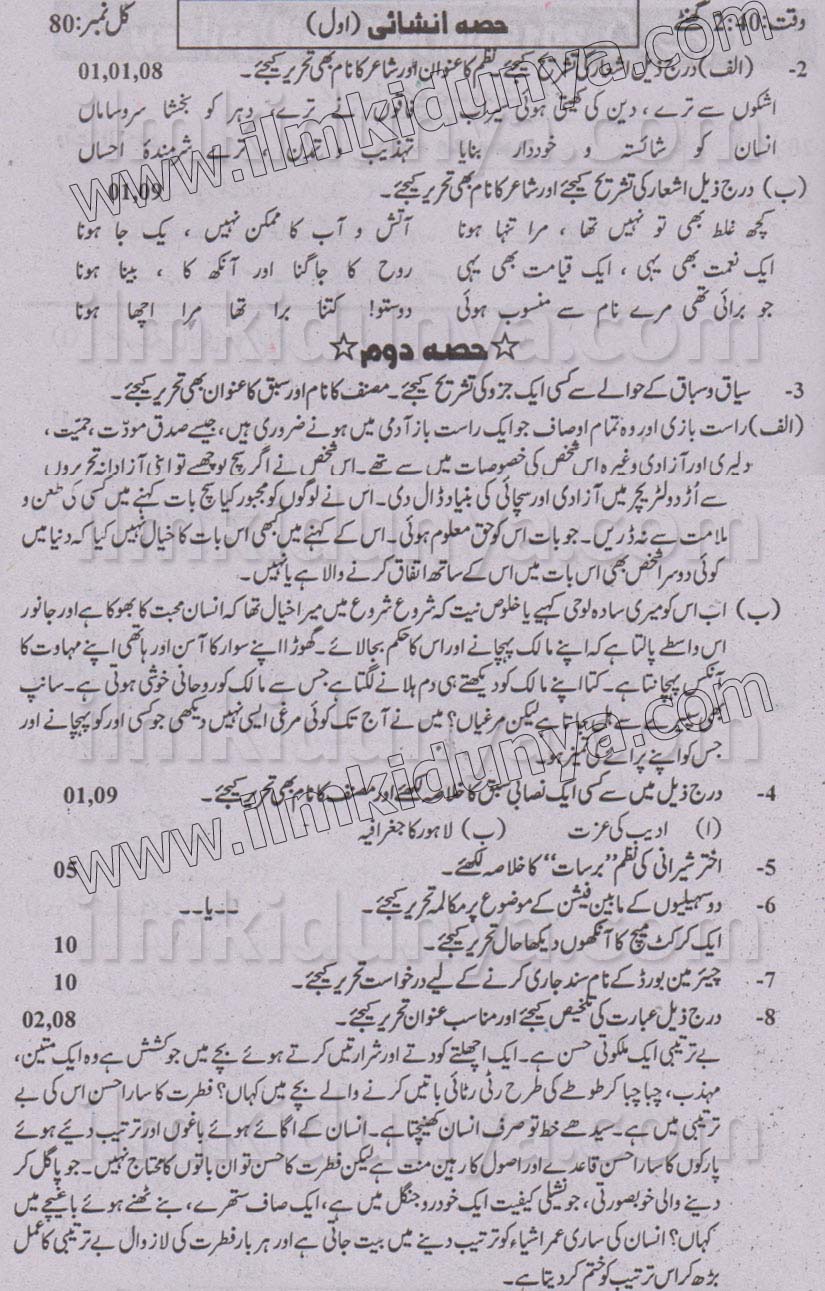 وقت: 2:40 گھنٹے
حصہ انشائی (اول)
کل نمبر: 80
2- (الف) درج ذیل اشعار کی تشریح کیجئے۔ نظم کا عنوان اور شاعر کا نام بھی تحریر کیجئے۔ 01,01,08
اشکوں سے ترے، دین کی کھیتی ہوئی سیراب فاقوں نے ترے، دہر کو بخشا سروساماں
انسان کو شائستہ و خوددار بنایا تہذیب و تمدن، ترے شرمندۂ احساں
(ب) درج ذیل اشعار کی تشریح کیجئے اور شاعر کا نام بھی تحریر کیجئے۔ 01,09
کچھ غلط بھی تو نہیں تھا، مرا تنہا ہونا آتش و آب کا ممکن نہیں، یک جا ہونا
ایک نعمت بھی یہی، ایک قیامت بھی یہی روح کا جاگنا اور آنکھ کا، بینا ہونا
جو برائی تھی مرے نام سے منسوب ہوئی دوستو! کتنا برا تھا مرا اچھا ہونا
☆حصہ دوم☆
3- سیاق و سباق کے حوالے سے کسی ایک جزو کی تشریح کیجئے۔ مصنف کا نام اور سبق کا عنوان بھی تحریر کیجئے۔
(الف) راست بازی اور وہ تمام اوصاف جو ایک راست باز آدمی میں ہونے ضروری ہیں، جیسے صدق مودّت، حمیّت،
دلیری اور آزادی وغیرہ اس شخص کی خصوصیات میں سے تھے۔ اس شخص نے اگر سچ پوچھیے تو اپنی آزادانہ تحریروں
سے اُردو لٹریچر میں آزادی اور سچائی کی بنیاد ڈال دی۔ اس نے لوگوں کو مجبور کیا سچ بات کہنے میں کسی کی طعن و
ملامت سے نہ ڈریں۔ جو بات اس کو حق معلوم ہوئی۔ اس کے کہنے میں کبھی اس بات کا خیال نہیں کیا کہ دنیا میں
کوئی دوسرا شخص بھی اس بات میں اس کے ساتھ اتفاق کرنے والا ہے یا نہیں۔
(ب) اب اس کو میری سادہ لوحی کہیے یا خلوص نیت کہ شروع شروع میں میرا خیال تھا کہ انسان محبت کا بھوکا ہے اور جانور
اس واسطے پالتا ہے کہ اپنے مالک پہچانے اور اس کا حکم بجا لائے۔ گھوڑا اپنے سوار کا آسن اور ہاتھی اپنے مہاوت کا
آنکس پہچانتا ہے۔ کتا اپنے مالک کو دیکھتے ہی دم ہلانے لگتا ہے جس سے مالک کو روحانی خوشی ہوتی ہے۔ سانپ
بھی سپیرے سے ہل جاتا ہے لیکن مرغیاں؟ میں نے آج تک کوئی مرغی ایسی نہیں دیکھی جو کسی اور کو پہچانے اور
جس کو اپنے پرائے کی تمیز ہو۔
4- درج ذیل میں سے کسی ایک نصابی سبق کا خلاصہ لکھئے اور مصنف کا نام بھی تحریر کیجئے۔ 01,09
(ا) ادیب کی عزت (ب) لاہور کا جغرافیہ
5- اختر شیرانی کی نظم "برسات" کا خلاصہ لکھئے۔ 05
6- دو سہیلیوں کے مابین فیشن کے موضوع پر مکالمہ تحریر کیجئے۔ ۔۔یا۔۔
ایک کرکٹ میچ کا آنکھوں دیکھا حال تحریر کیجئے۔ 10
7- چیئرمین بورڈ کے نام سند جاری کرنے کے لیے درخواست تحریر کیجئے۔ 10
8- درج ذیل عبارت کی تلخیص کیجئے اور مناسب عنوان تحریر کیجئے۔ 02,08
بے ترتیبی ایک ملکوتی حسن ہے۔ ایک اچھلتے کودتے اور شرارتیں کرتے ہوئے بچے میں جو کشش ہے وہ ایک متین،
مہذب، چبا چبا کر طوطے کی طرح رٹی رٹائی باتیں کرنے والے بچے میں کہاں؟ فطرت کا سارا حسن اس کی بے
ترتیبی میں ہے۔ سیدھے خط تو صرف انسان کھینچتا ہے۔ انسان کے اگائے ہوئے باغوں اور ترتیب دیئے ہوئے
پارکوں کا سارا حسن قاعدے اور اصول کا رہین منت ہے لیکن فطرت کا حسن تو ان باتوں کا محتاج نہیں۔ جو پاگل کر
دینے والی خوبصورتی، جو نشیلی کیفیت ایک خودرو جنگل میں ہے، ایک صاف ستھرے، بنے ٹھنے ہوئے باغیچے میں
کہاں؟ انسان کی ساری عمر اشیاء کو ترتیب دینے میں بیت جاتی ہے اور ہر بار فطرت کی لازوال بے ترتیبی کا عمل
بڑھ کر اس ترتیب کو ختم کر دیتا ہے۔
www.ilmkidunya.com
www.ilmkidunya.com
ilmkidunya.com
ilmkidunya.com
ilmkidunya.com
ilmkidunya.com
ilmkidunya.com
ilmkidunya.com